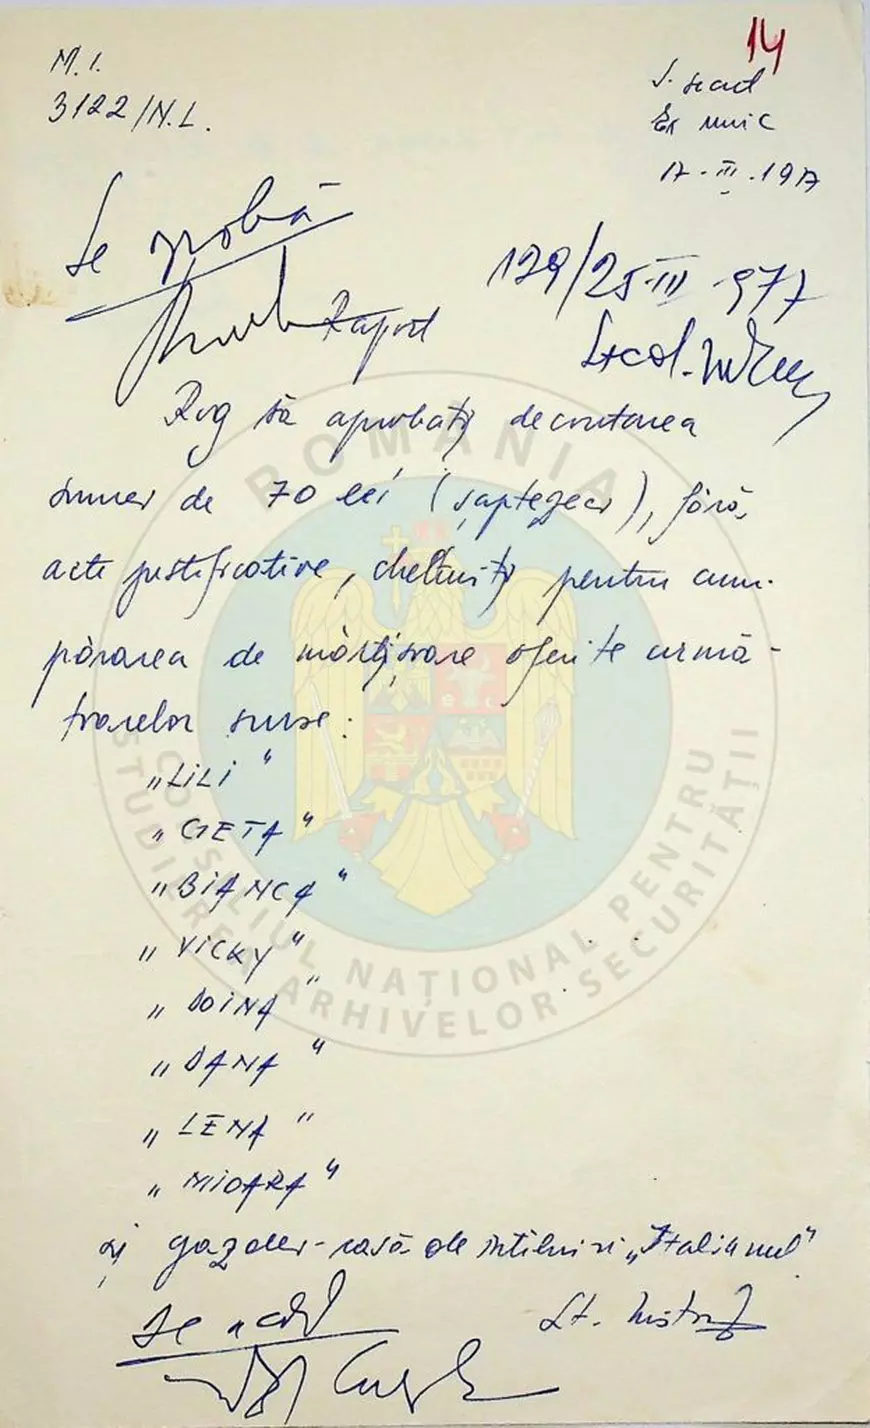 14
M. I.
3122/N.L.
S. secret
Ex unic
17.III.1977
Se aprobă
129/25.III.977
Raport
Lt.col.
Rog să aprobați decontarea
sumei de 70 lei (șaptezeci), fără
acte justificative, cheltuiți pentru cum-
părarea de mărțișoare oferite urmă-
toarelor surse:
„LILI"
„GETA"
„BIANCA"
„VICKY"
„DOINA"
„DANA"
„LENA"
„MIOARA"
și gazdei-casă de întîlniri „Italianul"
Lt.
ROMÂNIA
CONSILIUL NAȚIONAL PENTRU
STUDIEREA ARHIVELOR SECURITĂȚII